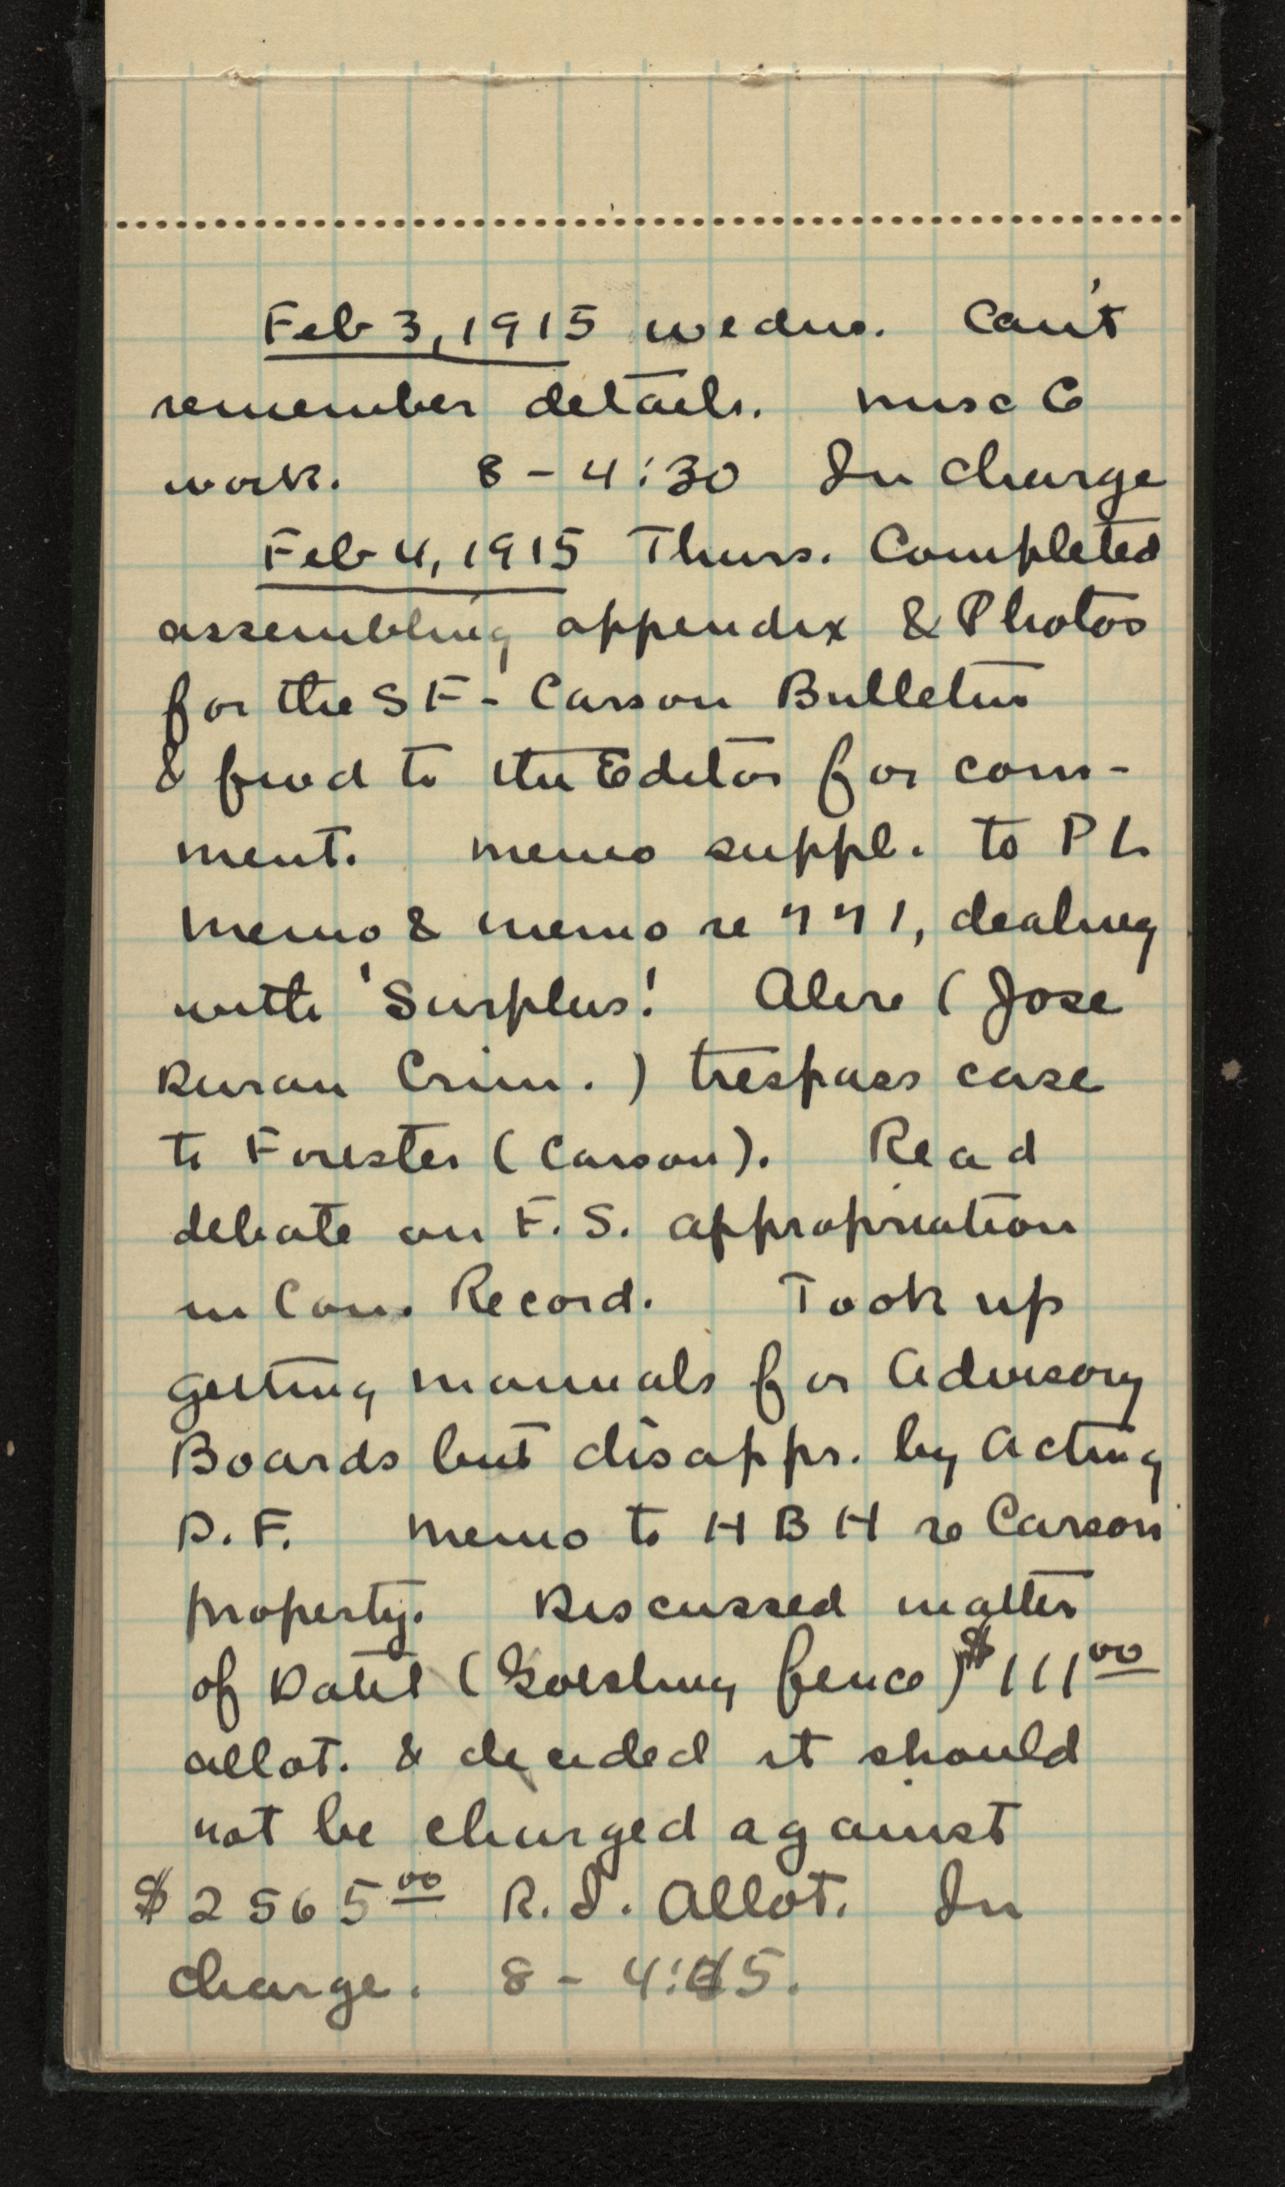 Feb 3, 1915 Wedns. Can't
remember details. Misc G
work. 8 - 4:30 In Charge
Feb 4, 1915 Thurs. Completed
assembling appendix & Photos
for the SF - Carson Bulletin
& fwd to the Editor for com-
ment. Memo suppl. to PL
Memo & memo re 771, dealing
with 'Surplus'. Alire (Jose
Duran Crim.) trespass case
to Forester (Carson). Read
debate on F. S. appropriation
in Con. Record. Took up
getting manuals for Advisory
Boards but disappr. by Acting
D. F. Memo to HBH re Carson
property. Discussed matter
of Datil (Goesling fence) $111 00
allot. & decided it should
not be charged against
$2565 00 R. I. Allot. In
charge. 8 - 4:45.